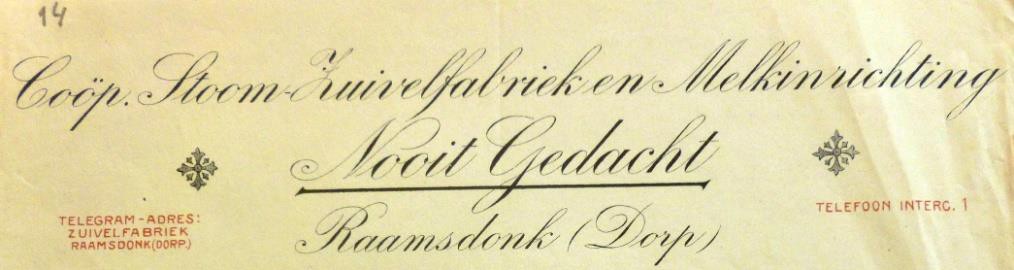 14
Coöp. Stoom-Zuivelfabriek en Melkinrichting
Nooit Gedacht
Raamsdonk (Dorp)
TELEGRAM-ADRES:
ZUIVELFABRIEK
RAAMSDONK (DORP.)
TELEFOON INTERC. 1